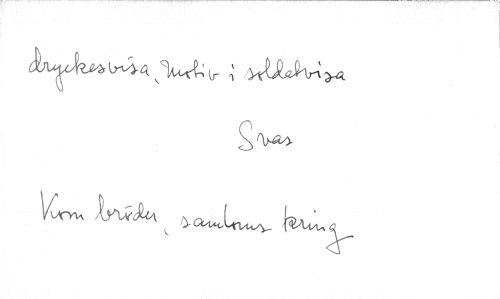 dryckesvisa, Motiv i soldatvisa
Svas
Kom bröder, samloms kring